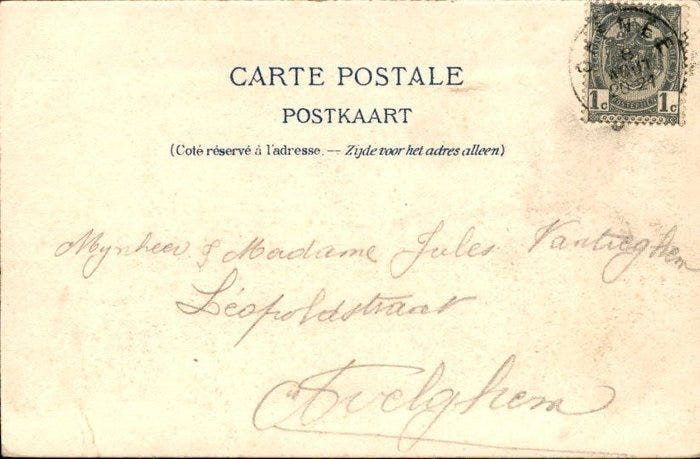 CARTE POSTALE
POSTKAART
(Coté réservé à l'adresse. — Zijde voor het adres alleen)
1c 1c
Mynheer & Madame Jules Vantieghem
Léopoldstraat
Avelghem